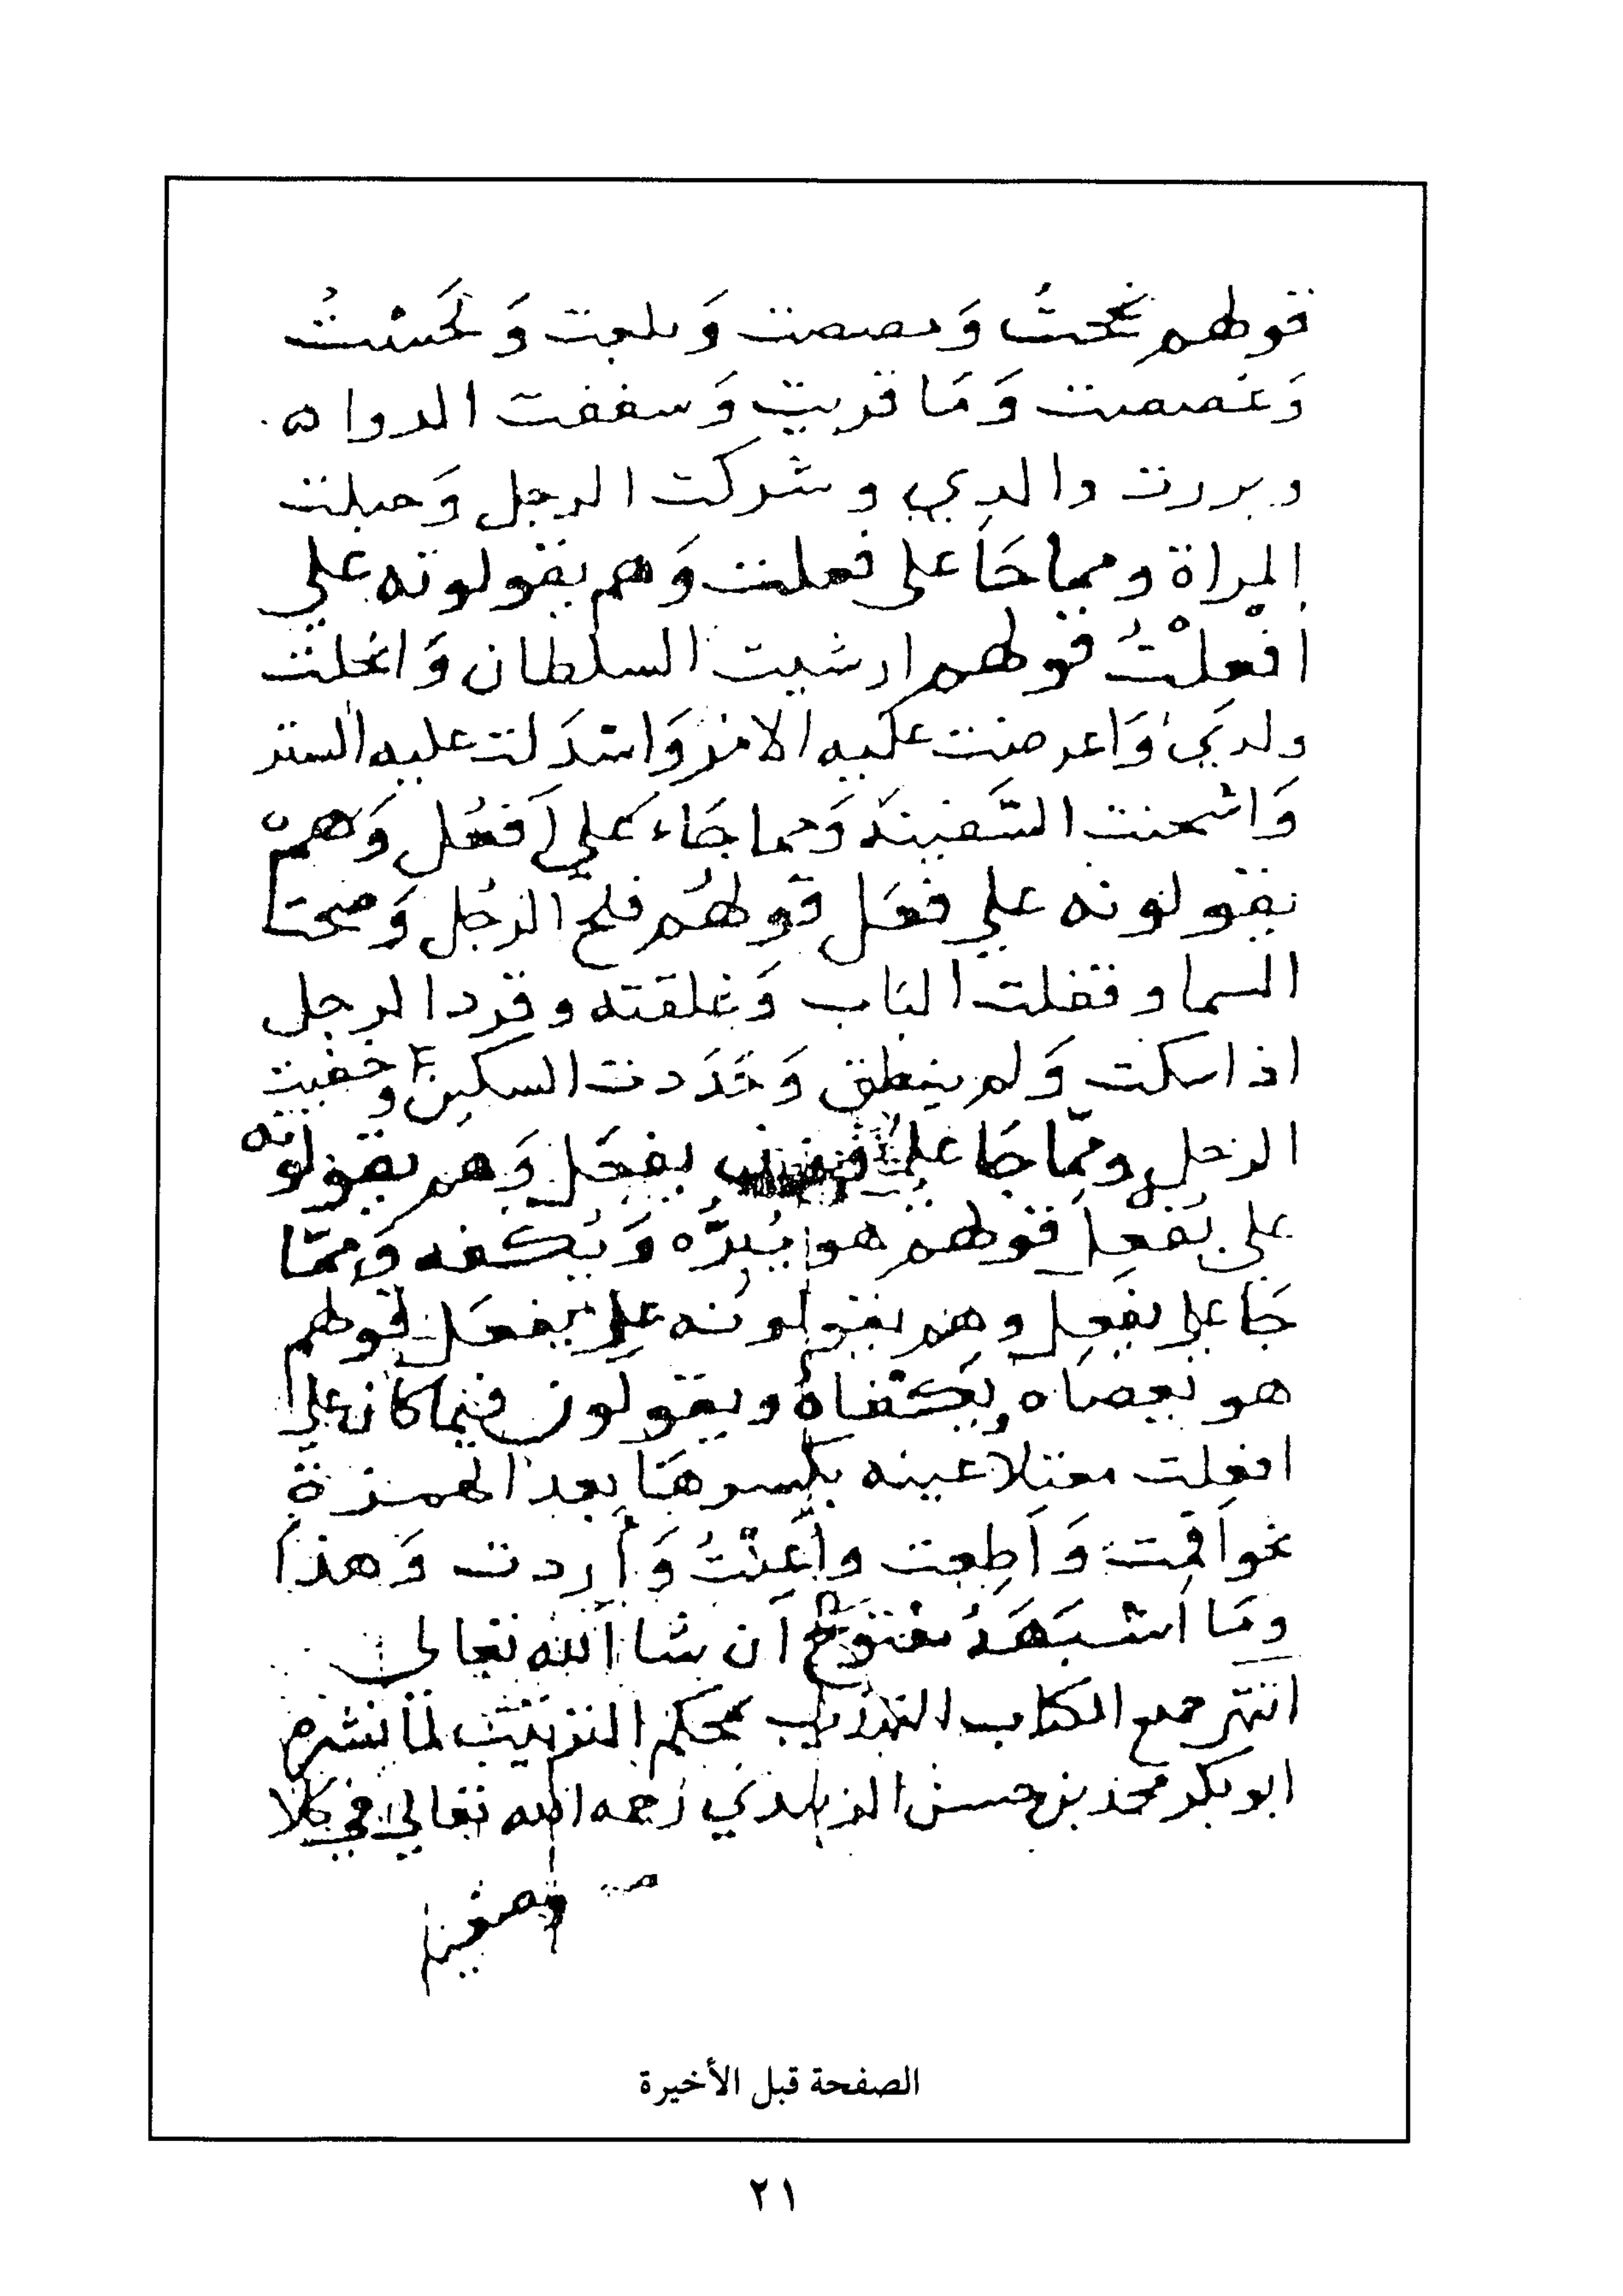 قولهم بححتُ وَمصصت وَبلعت وَلَحَسْتُ
وَغصصت وَمَا قربت وَسففت الدوا ه
وبررت والدي وشركت الرجل وَحبلت
المراة ومما جَا على فعلت وَهم يقولونه علي
افْعلْتُ قولهم ارشيت السلطان وَانحلت
ولدي وَاعرضت عليه الامر وَاسدَلت عليه الستر
وَاشحنت السَّفينة وَمما جَاء عَلي أفعَل وَهمْ
يقولونه علي فعَل قولهُم فلح الرجُل وَصحتا
السما وقفلت البَاب وَغلقته وقرد الرجل
اذا سكت وَلم ينطق وَحَدَدت السكين وخفيت
الرجل وممّا جَا على يفعَل وَهم يقولونه
على يُفْعِل قولهم هو يُبِرُّه وَيُكفه وَممّا
جَا على يفعِل وهم يقولونه على يفعَل قولهم
هو يعصَاه ويَكفاهُ ويقولون فيما كان على
افعلت معتلا عينه بكسرهَا بعد الهمزة
نحو اَقِمت وَاَطِعت واَعِنْتُ وَأَرِدت وَهذا
ومَا اَشبَهَهُ مفتوح ان شا الله تعالى
انتهى جميع الكتاب التهذيب بمحكم الترتيب لما نشره
ابو بكر محمد بن حسن الزبيدي رحمه الله تعالى في كلا
الصفحة قبل الأخيرة
٢١